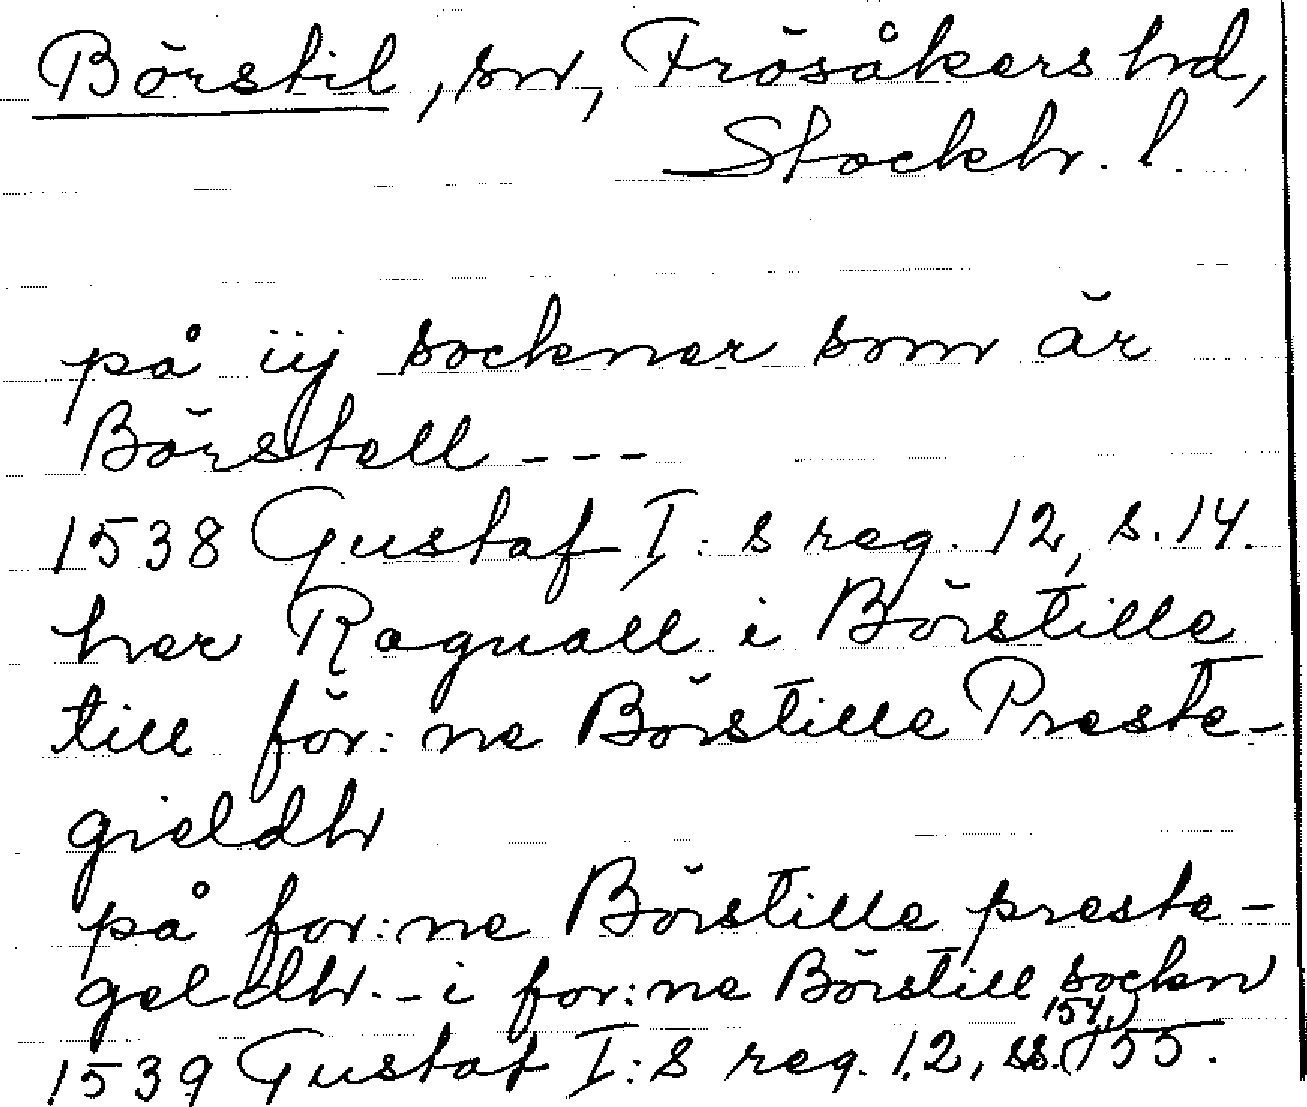 Börstil, sn, Frösåkers hd,
Stockh. l.
på iij sockner som är
Börstell ---
1538 Gustaf I:s reg. 12, s. 14.
her Raguall i Börstille
till för:ne Börstille Preste-
gieldh
på for:ne Börstille preste-
geldh. - i for:ne Börstill sockn
1539 Gustaf I:s reg. 12, ss. (154,) 155.